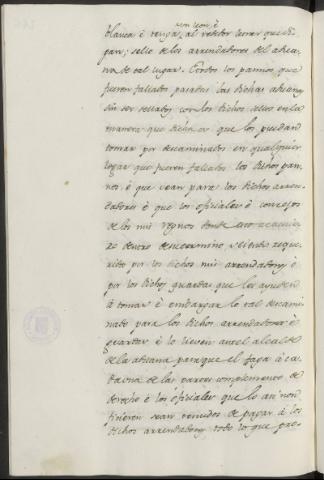 blanca é tenga al rededor letras que di-
gan: sello de los arrendadores del aduana
de tal lugar. E todos los pannos que
fueren fallados pasadas las dichas aduanas
sin ser sellados con los dichos sellos en la
manera que dicha es que los puedan
tomar por descaminados en qualquier
logar que fueren fallados los dichos pan-
nos é que sean para los dichos arren-
dadores é que los oficiales é concejos
de los mis regnos donde esto acaecie-
re dentro de su termino seyendo reque-
ridos por los dichos mis arrendadores é
por los dichos guardas que les ayuden
á tomar é embargar lo tal descami-
nado para los dichos arrendadores é
guardas é lo lieven ante el alcalde
de la aduana para que el faga á ca-
da una de las partes complimiento de
derecho é los oficiales que lo asi non
ficieren sean tenudos de pagar á los
dichos arrendadores todo lo que